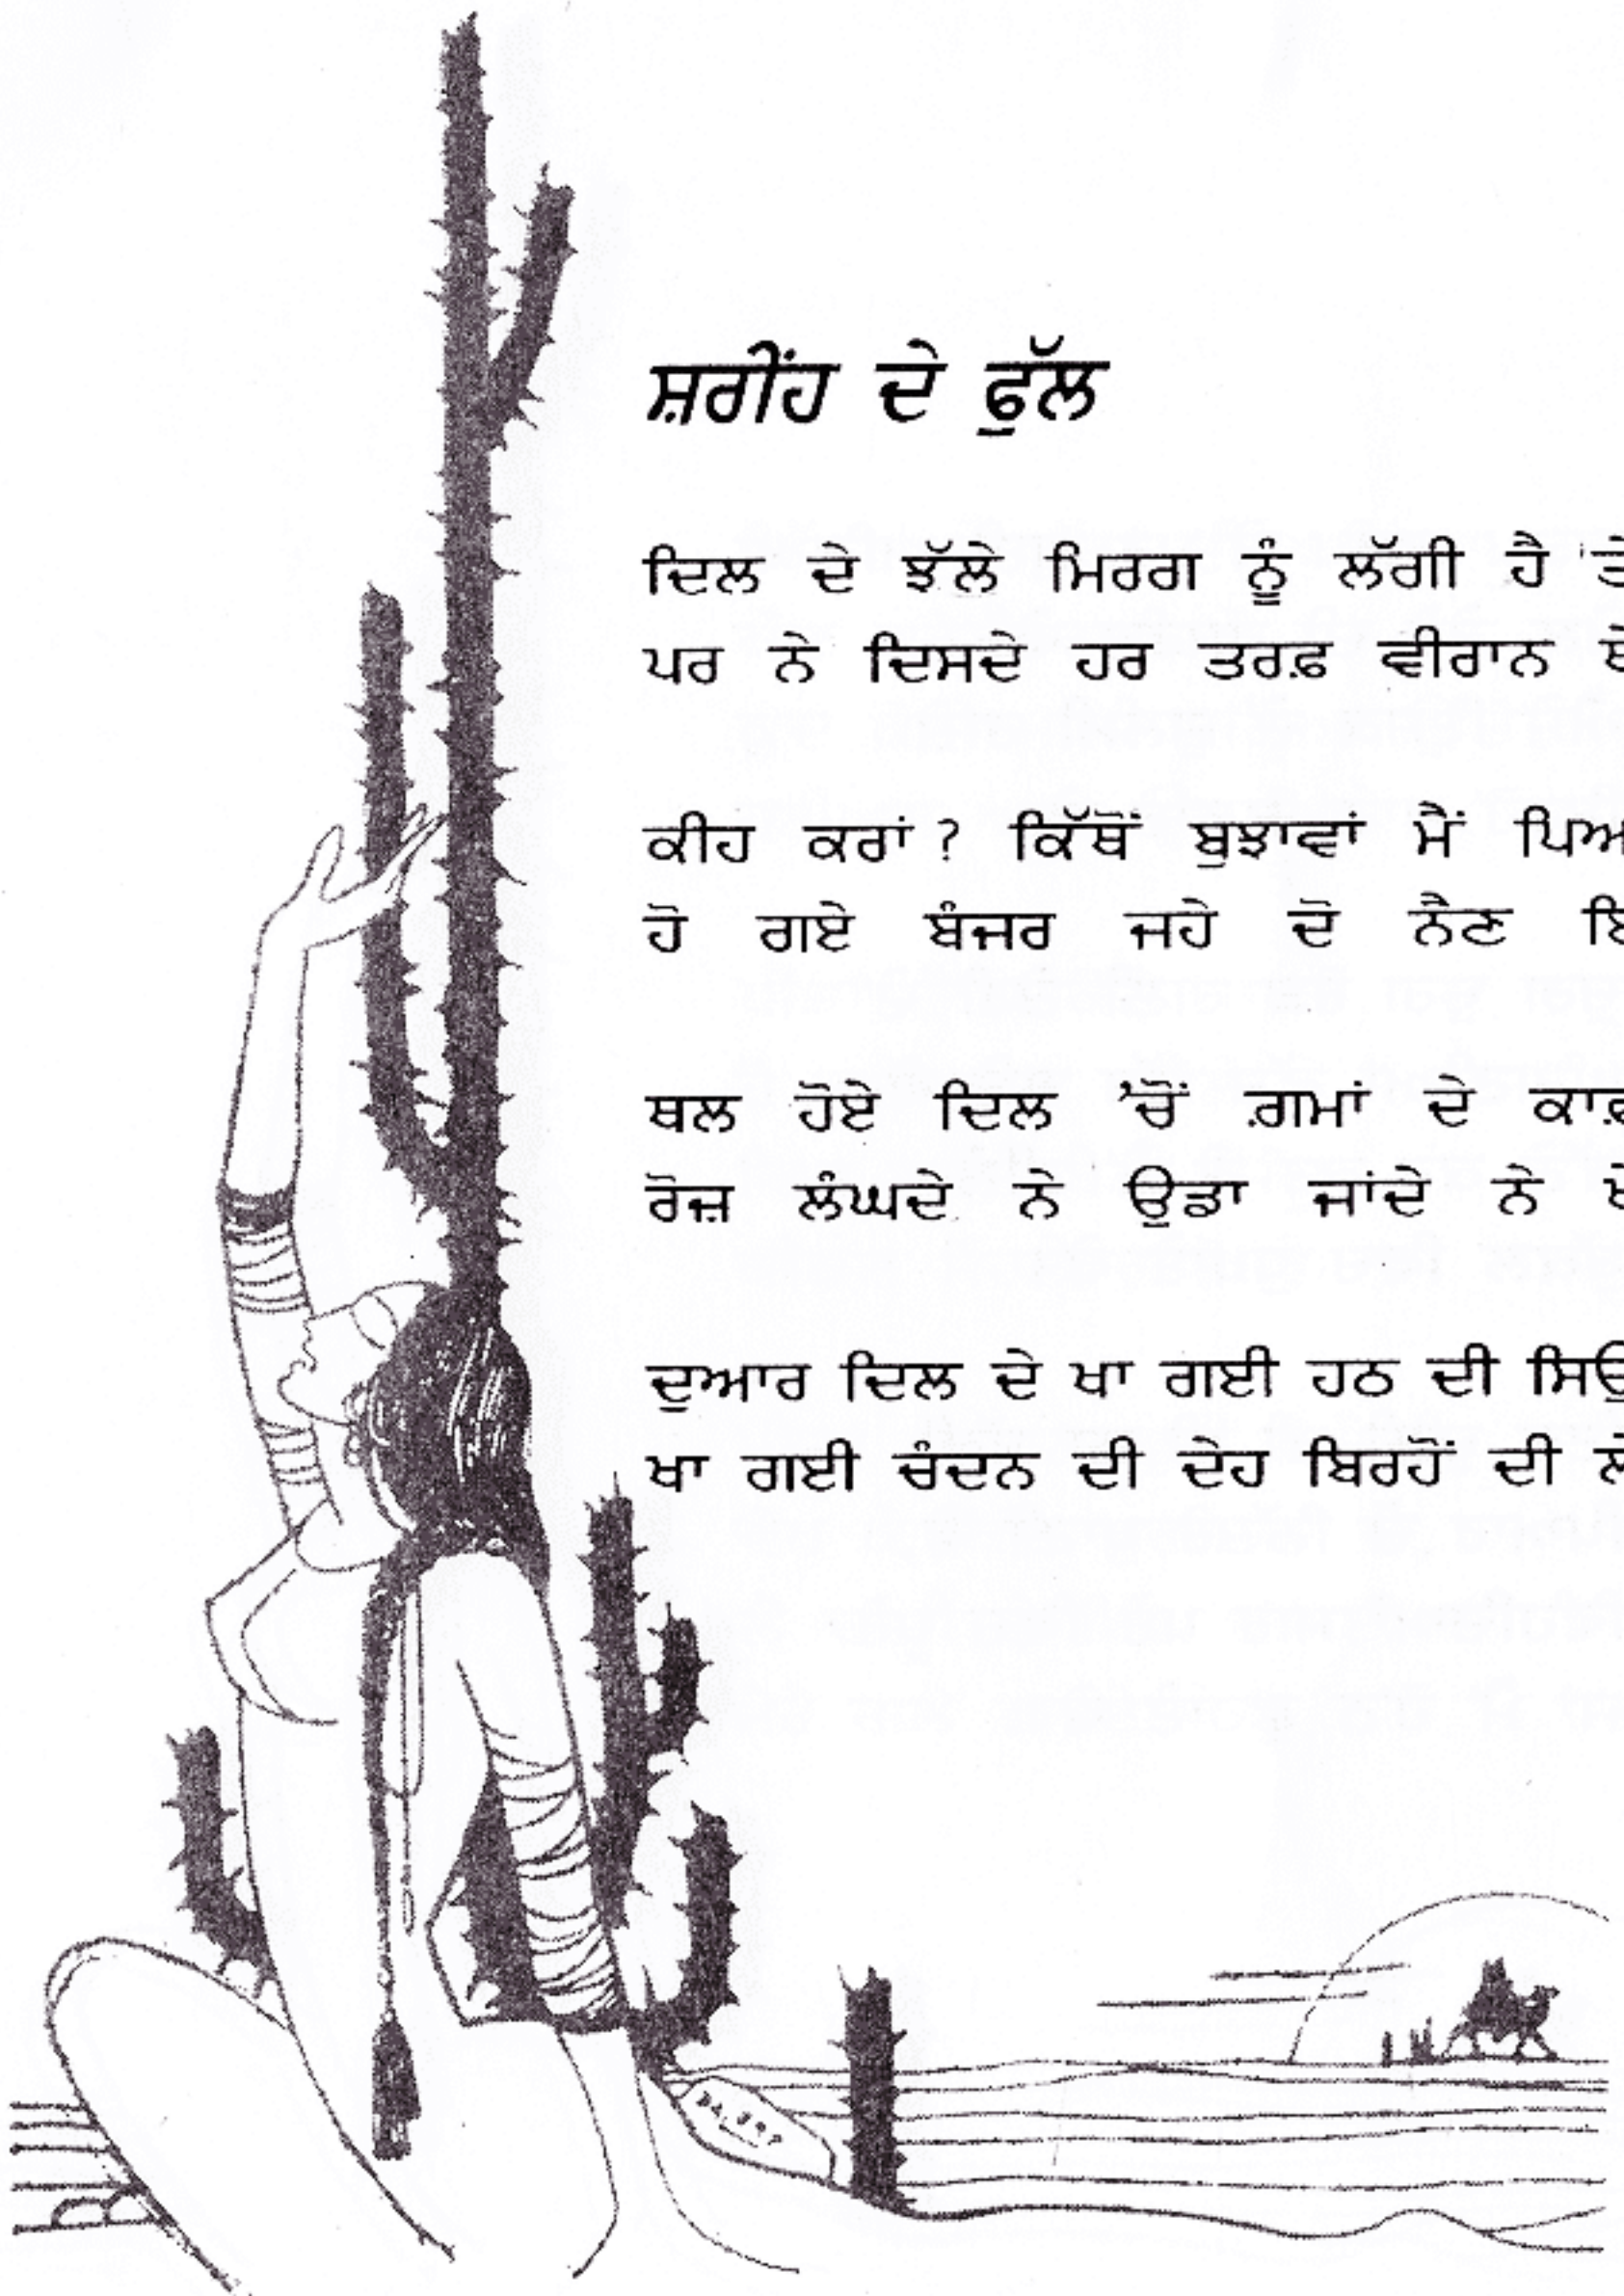 ਸ਼ਰੀਂਹ ਦੇ ਫੁੱਲ
ਦਿਲ ਦੇ ਝੱਲੇ ਮਿਰਗ ਨੂੰ ਲੱਗੀ ਹੈ
ਪਰ ਨੇ ਦਿਸਦੇ ਹਰ ਤਰਫ਼ ਵੀਰਾਨ
ਕੀਹ ਕਰਾਂ ? ਕਿੱਥੋਂ ਬੁਝਾਵਾਂ ਮੈਂ
ਹੋ ਗਏ ਬੰਜਰ ਜਹੇ ਦੋ ਨੈਣ
ਥਲ ਹੋਏ ਦਿਲ 'ਚੋਂ ਗ਼ਮਾਂ ਦੇ
ਰੋਜ਼ ਲੰਘਦੇ ਨੇ ਉਡਾ ਜਾਂਦੇ ਨੇ
ਦੁਆਰ ਦਿਲ ਦੇ ਖਾ ਗਈ ਹਠ ਦੀ
ਖਾ ਗਈ ਚੰਦਨ ਦੀ ਦੇਹ ਬਿਰਹੋਂ ਦੀ